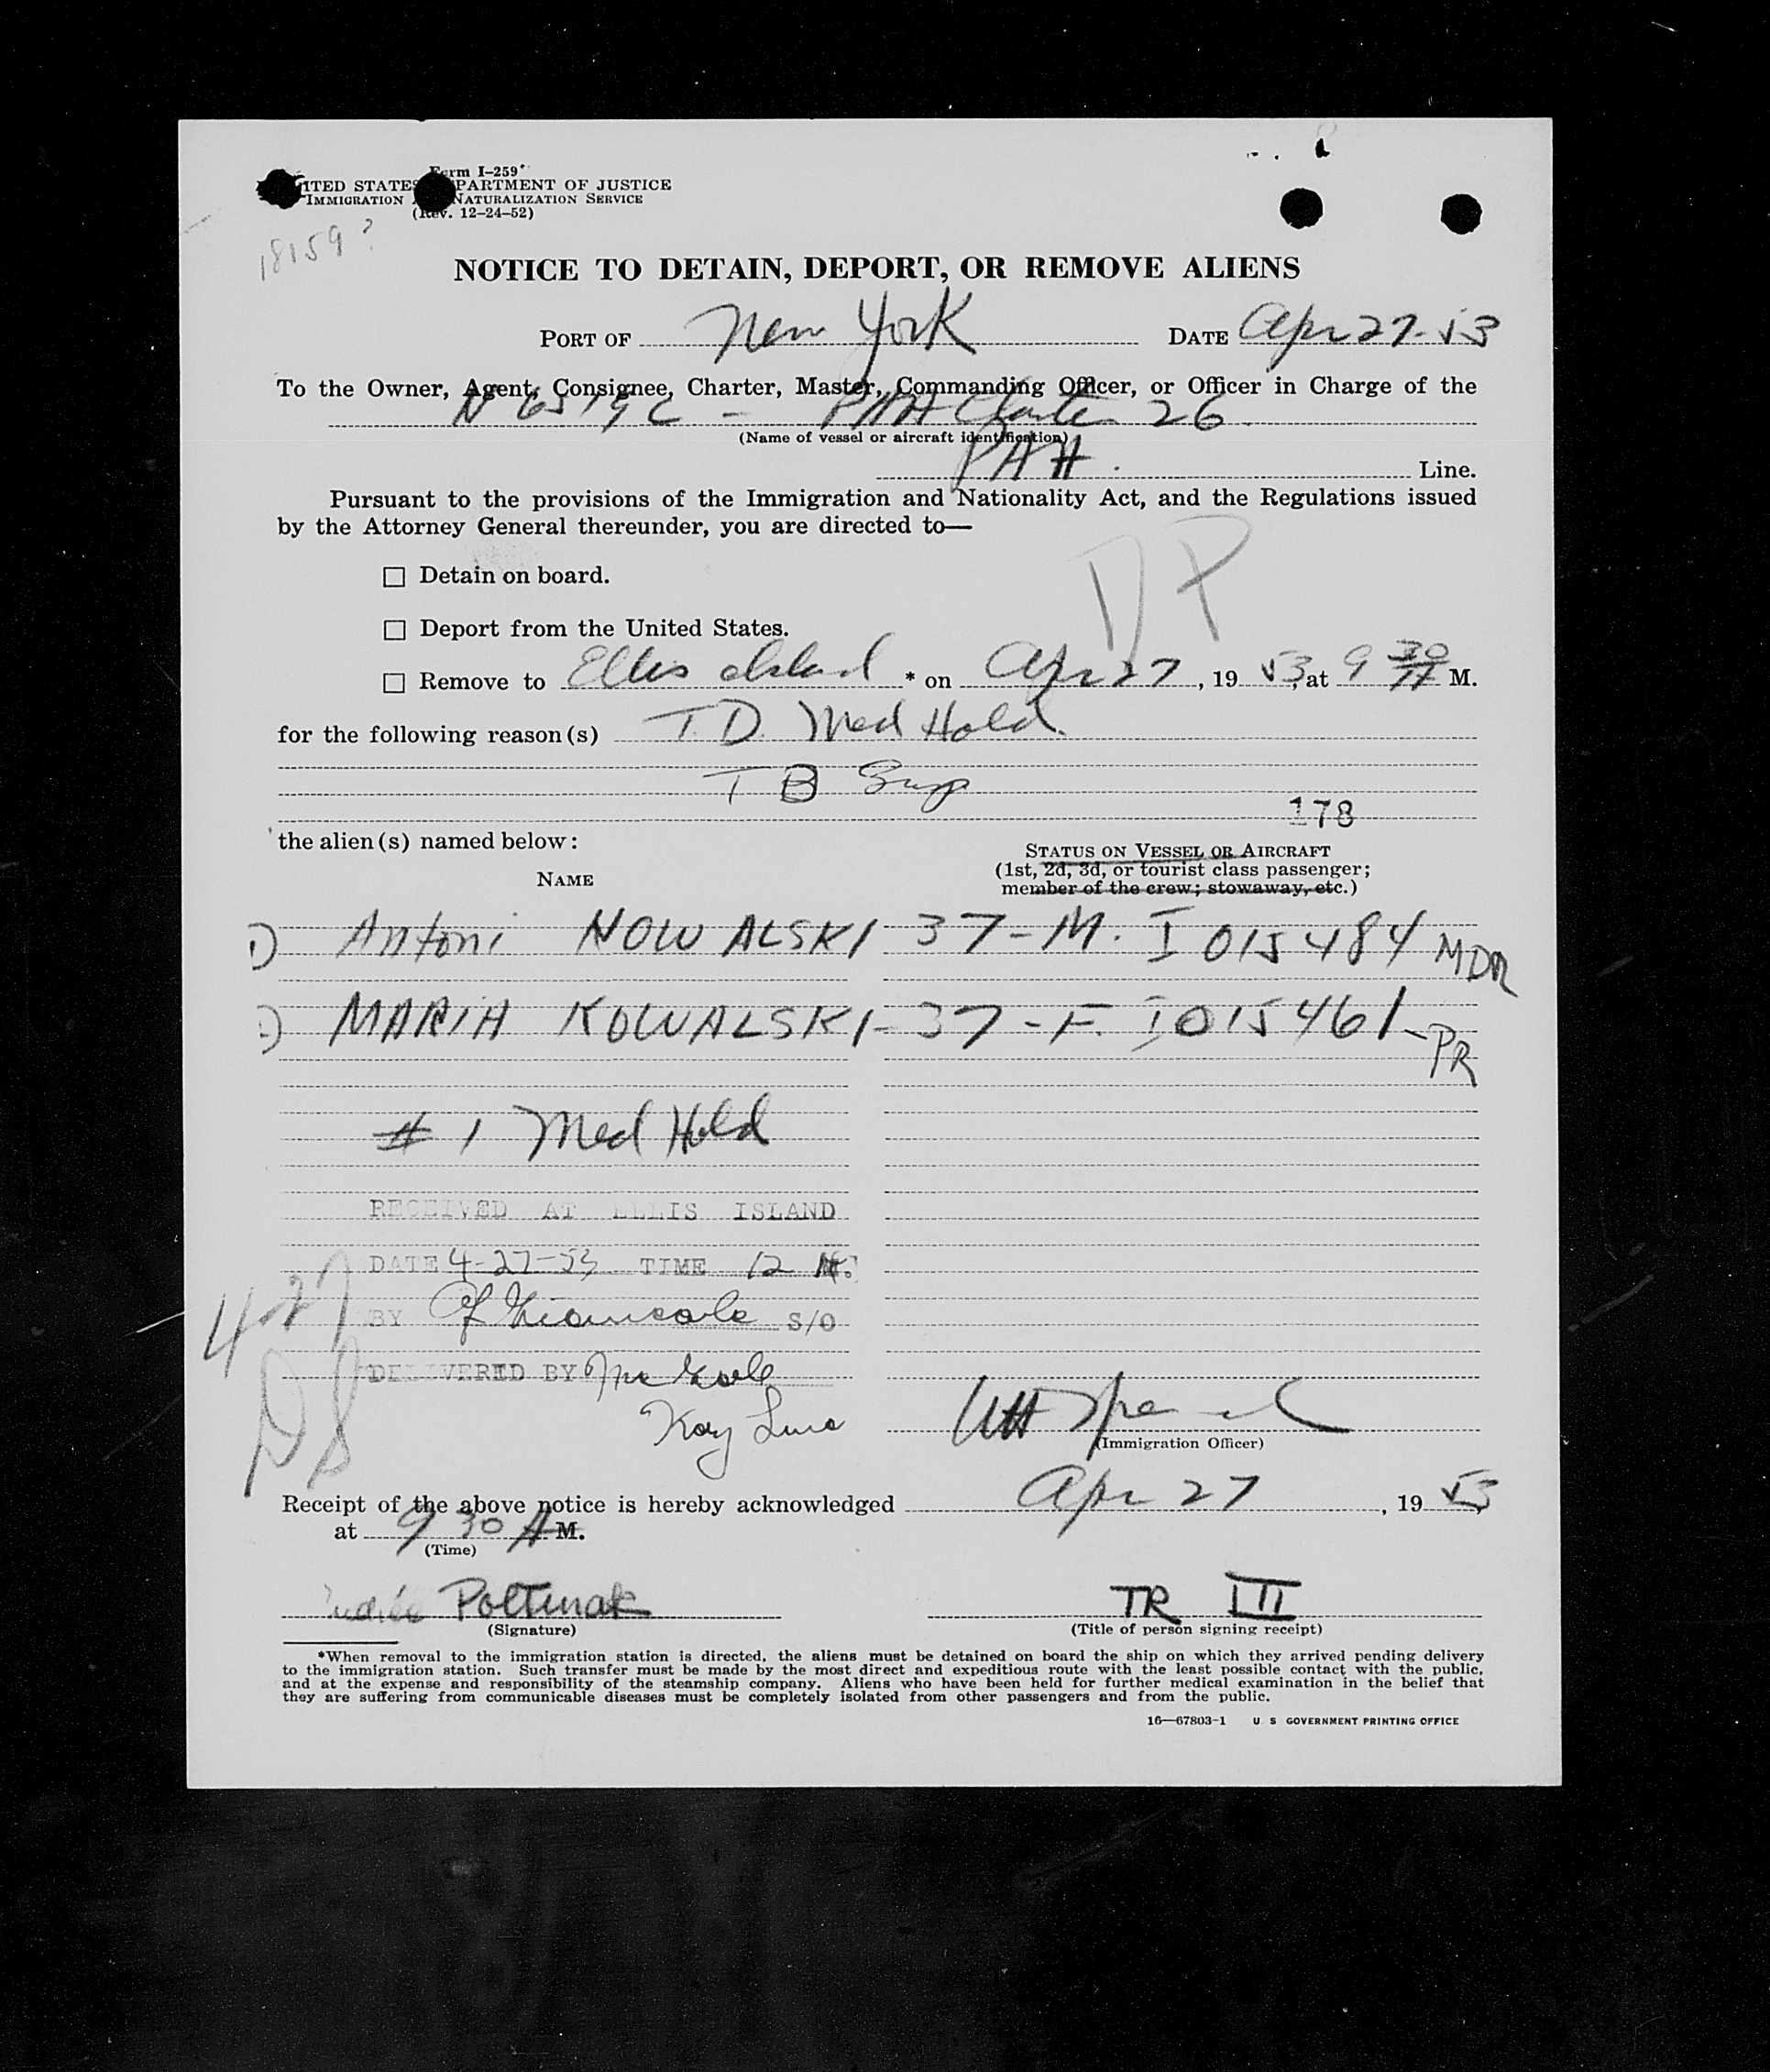 Form I-259
UNITED STATES DEPARTMENT OF JUSTICE
IMMIGRATION AND NATURALIZATION SERVICE
(Rev. 12-24-52)
18159?
NOTICE TO DETAIN, DEPORT, OR REMOVE ALIENS
PORT OF New York DATE Apr 27-53
To the Owner, Agent, Consignee, Charter, Master, Commanding Officer, or Officer in Charge of the
PAA Charter 26
(Name of vessel or aircraft identification)
PAA. Line.
Pursuant to the provisions of the Immigration and Nationality Act, and the Regulations issued
by the Attorney General thereunder, you are directed to—
DP
☐ Detain on board.
☐ Deport from the United States.
☐ Remove to Ellis Island * on Apr 27, 1953, at 9 30 A M.
for the following reason(s) T.D. Med Hold
TB Susp
178
the alien(s) named below:
STATUS ON VESSEL OR AIRCRAFT
(1st, 2d, 3d, or tourist class passenger;
member of the crew; stowaway, etc.)
NAME
1) Antoni NOWALSKI 37-M. I 015484 MDR
2) MARIA KOWALSKI-37-F. I015461-PR
# 1 Med Hold
RECEIVED AT ELLIS ISLAND
DATE 4-27-53 TIME 12 N.
BY S/O
4-27
DELIVERED BY
DS
(Immigration Officer)
Receipt of the above notice is hereby acknowledged Apr 27, 1953
at 9 30 A M.
(Time)
Poltinak TR III
(Signature) (Title of person signing receipt)
*When removal to the immigration station is directed, the aliens must be detained on board the ship on which they arrived pending delivery
to the immigration station. Such transfer must be made by the most direct and expeditious route with the least possible contact with the public,
and at the expense and responsibility of the steamship company. Aliens who have been held for further medical examination in the belief that
they are suffering from communicable diseases must be completely isolated from other passengers and from the public.
16—67803-1 U S GOVERNMENT PRINTING OFFICE